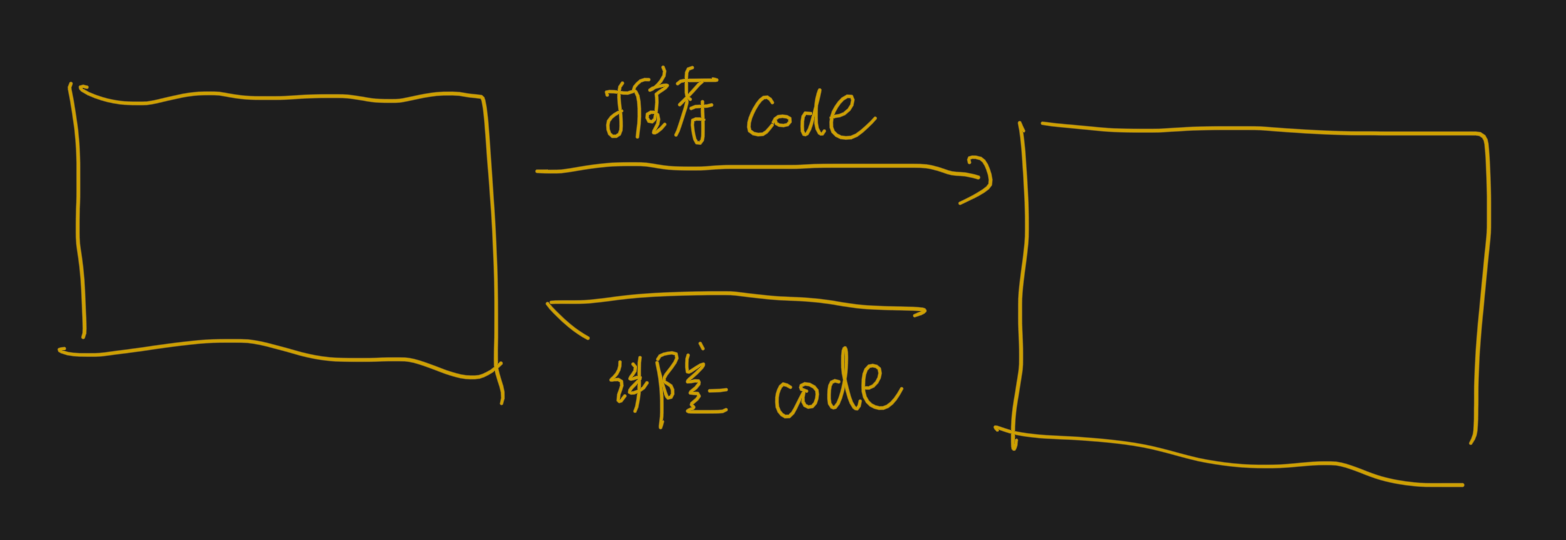 推荐 code
绑定 code